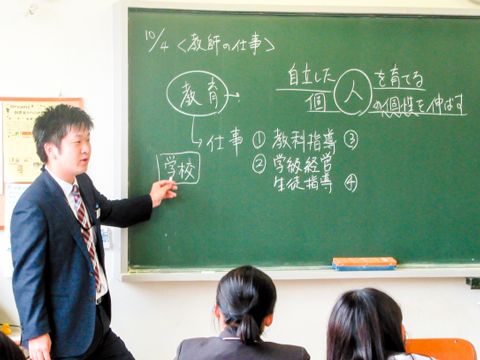 10/4 <教師の仕事>
教育→ 自立した 人 を育てる
個 の個性を伸ばす
→仕事 ① 教科指導 ③
学校 ② 学級経営
生徒指導 ④